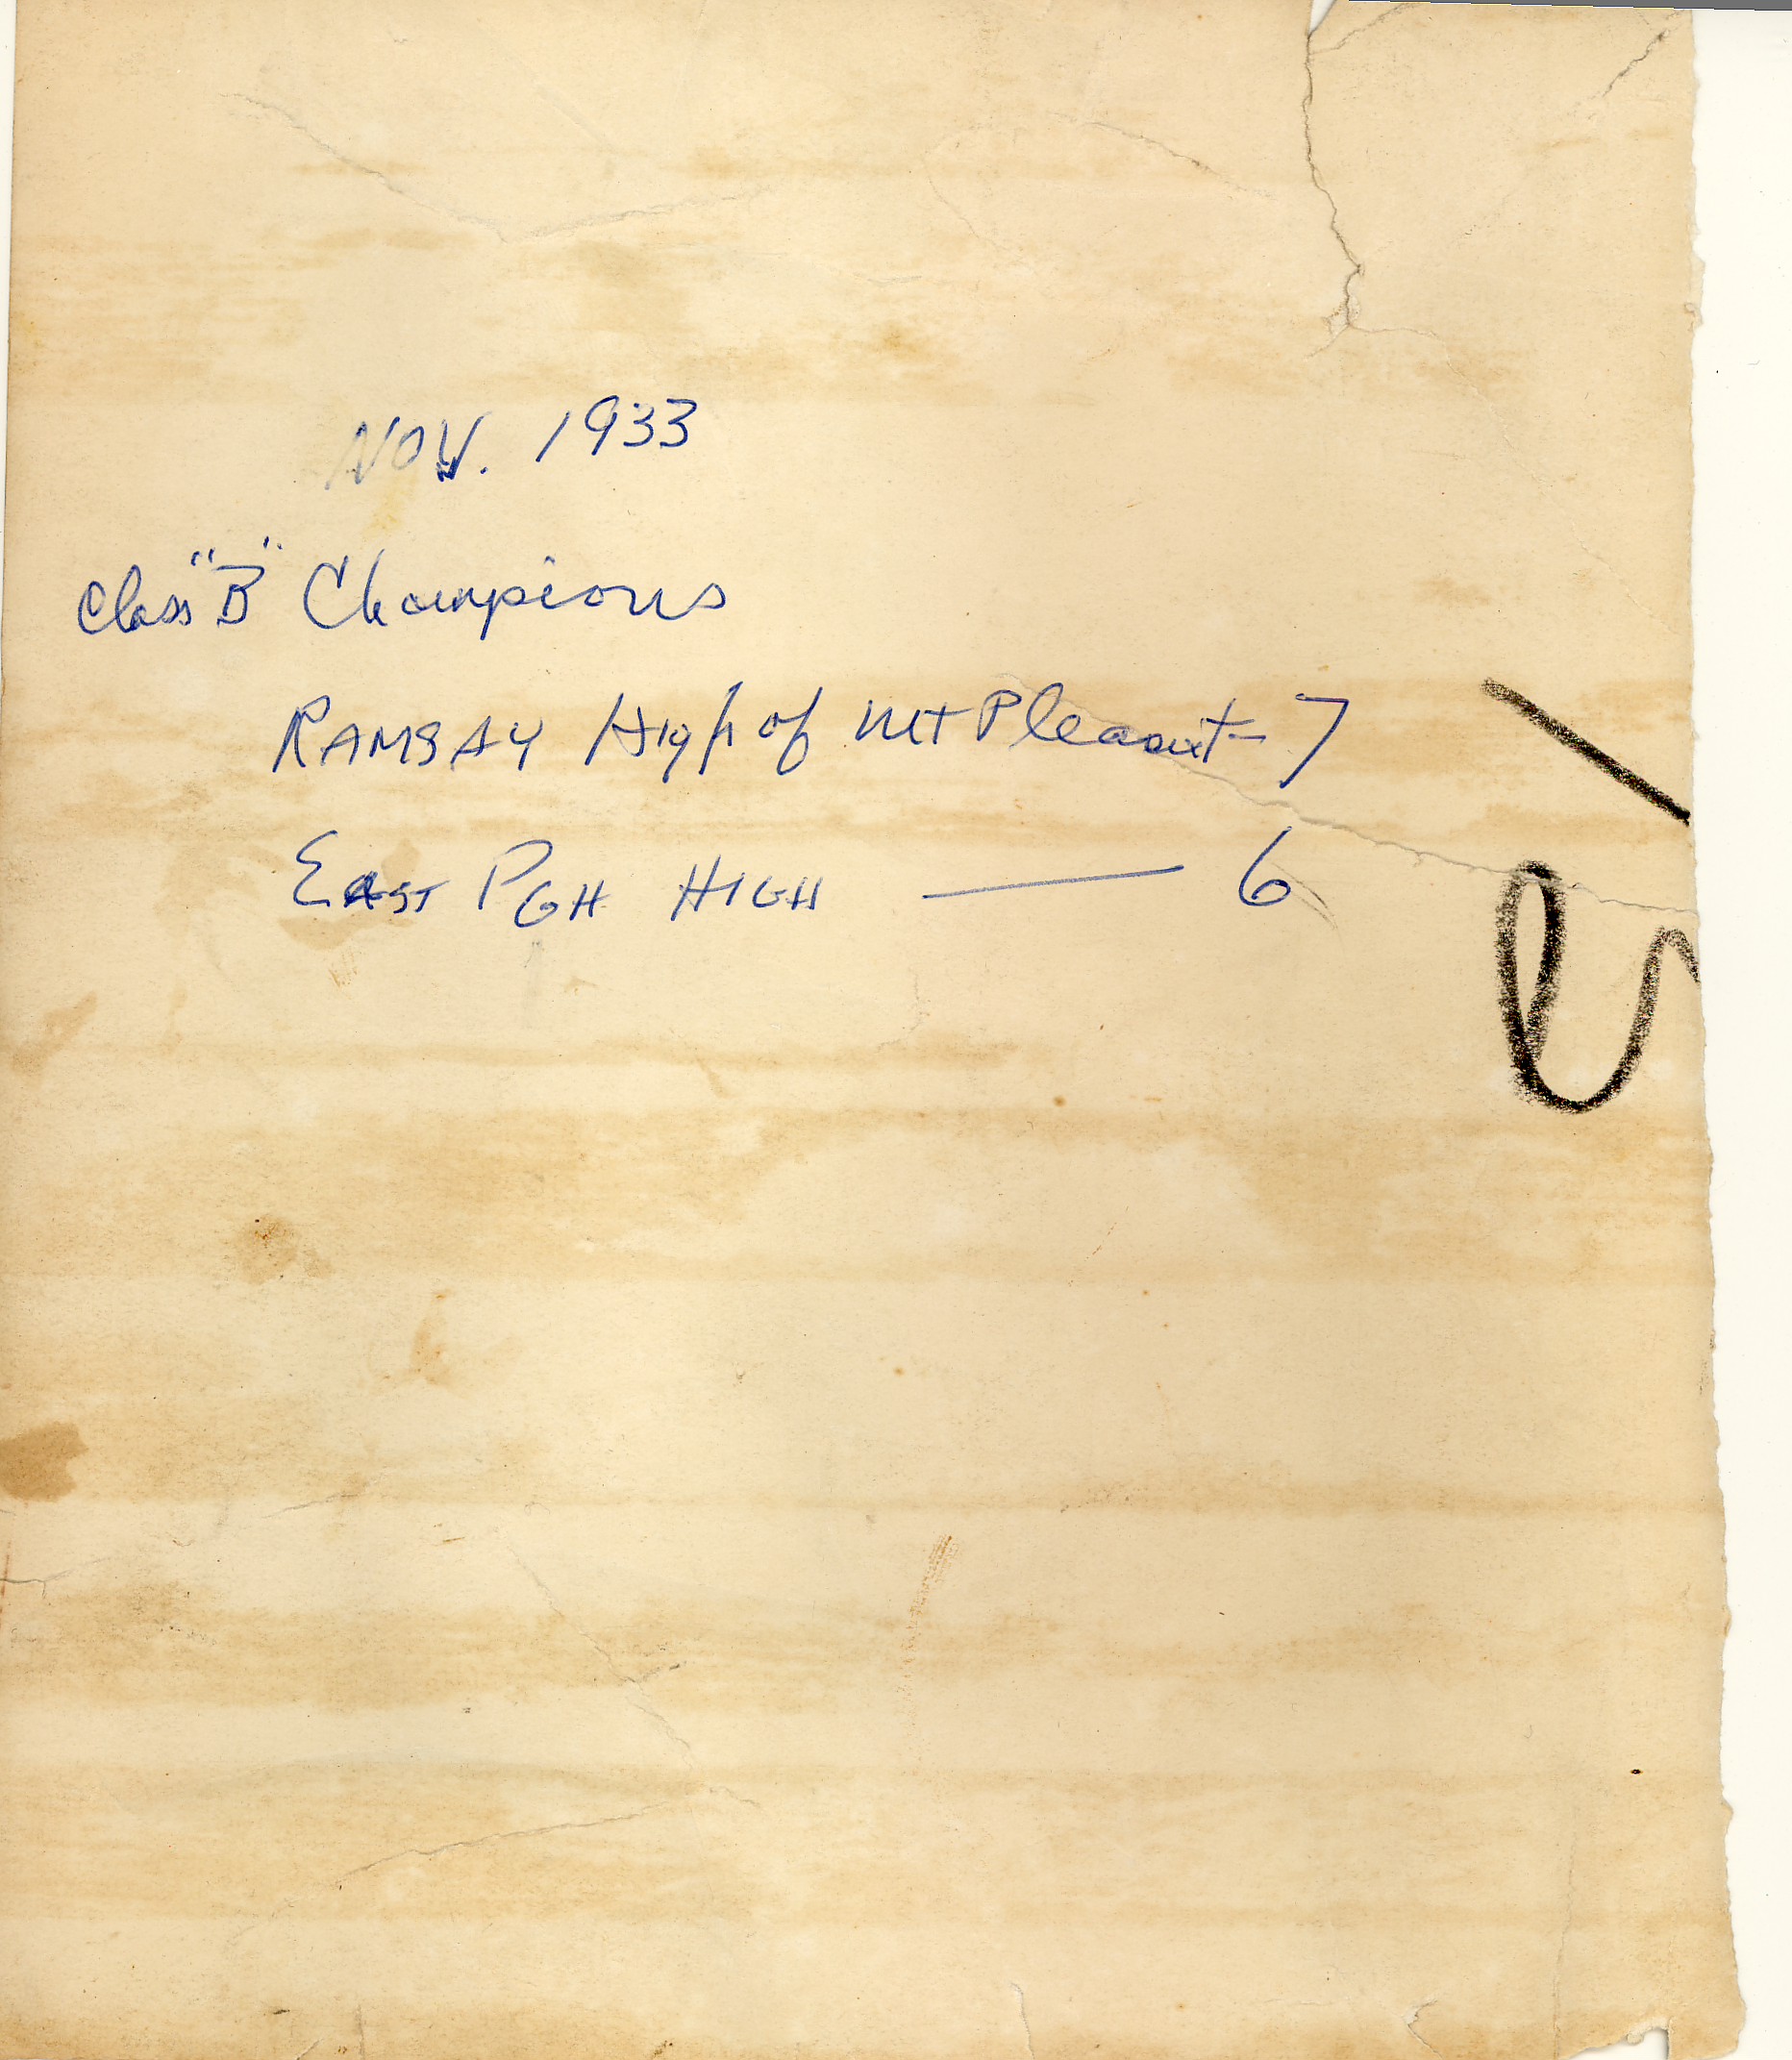 NOV. 1933
Class "B" Champions
RAMSAY High of Mt Pleasant - 7
EAST PGH HIGH — 6